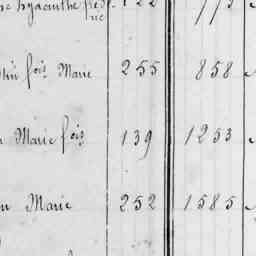 hyacinthe fréd
ric
fois Marie 255 858
Marie fois 139 1253
Marie 252 1585